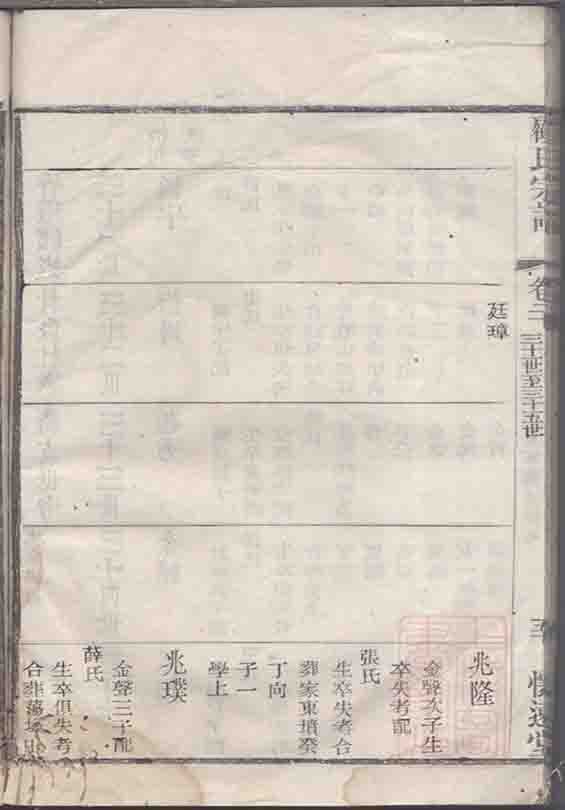 氏宗譜
卷二
三十世至三十五世
廷璋
兆隆
金聲次子生
卒失考配
張氏
生卒失考合
葬家東墳癸
丁向
子一
學上
兆璞
金聲三子配
薛氏
生卒俱失考
合葬蕩